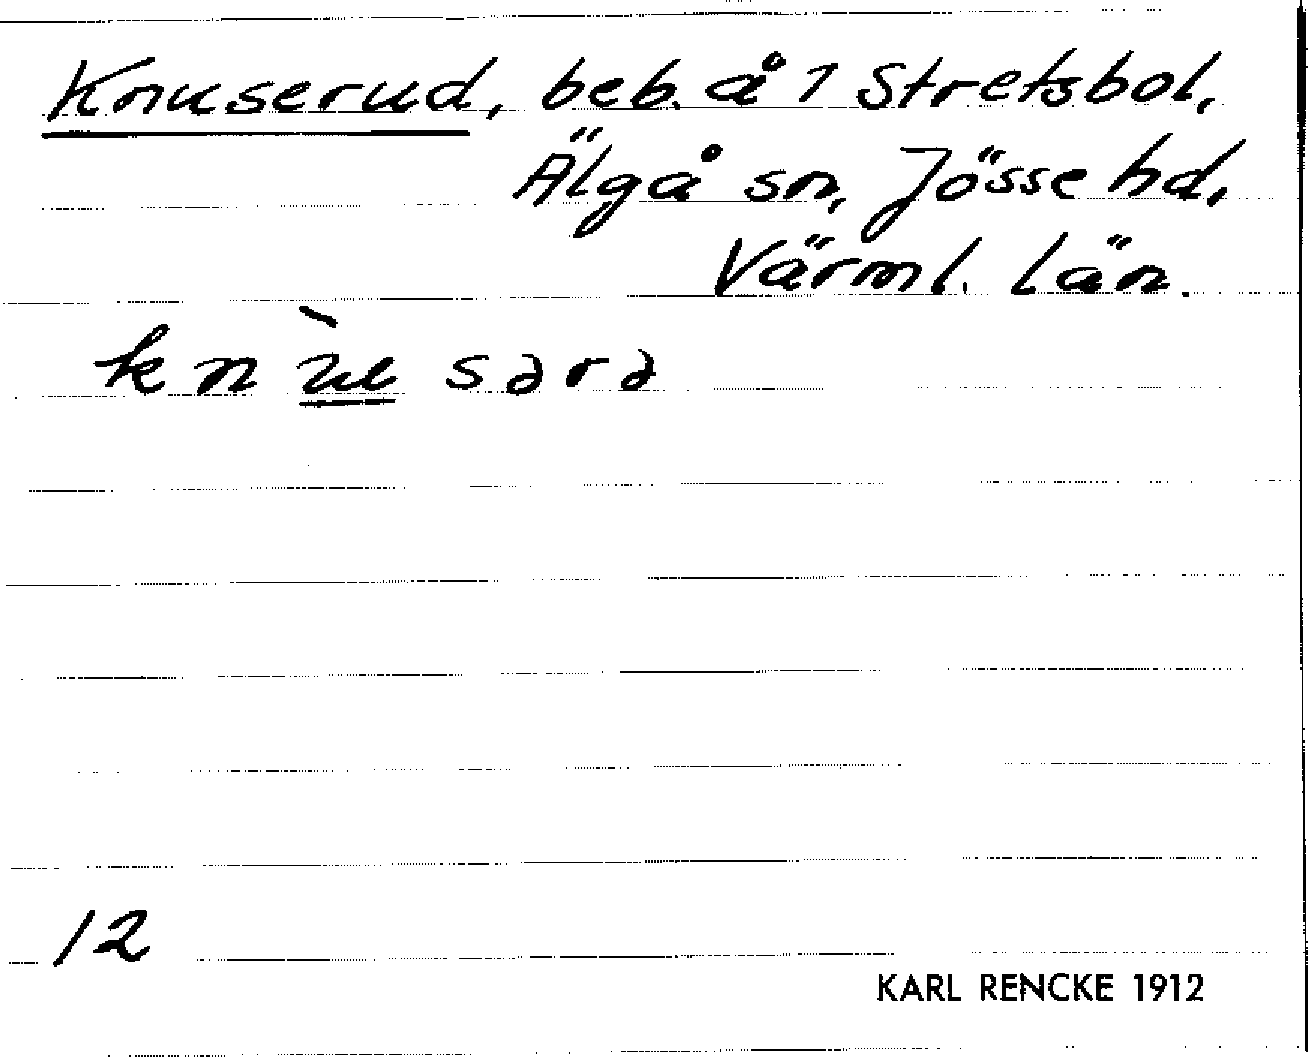 Knuserud, beb. å 1 Stretsbol,
Älgå sn, Jösse hd,
Värml. län.
knʉ̀sərə
12
KARL RENCKE 1912